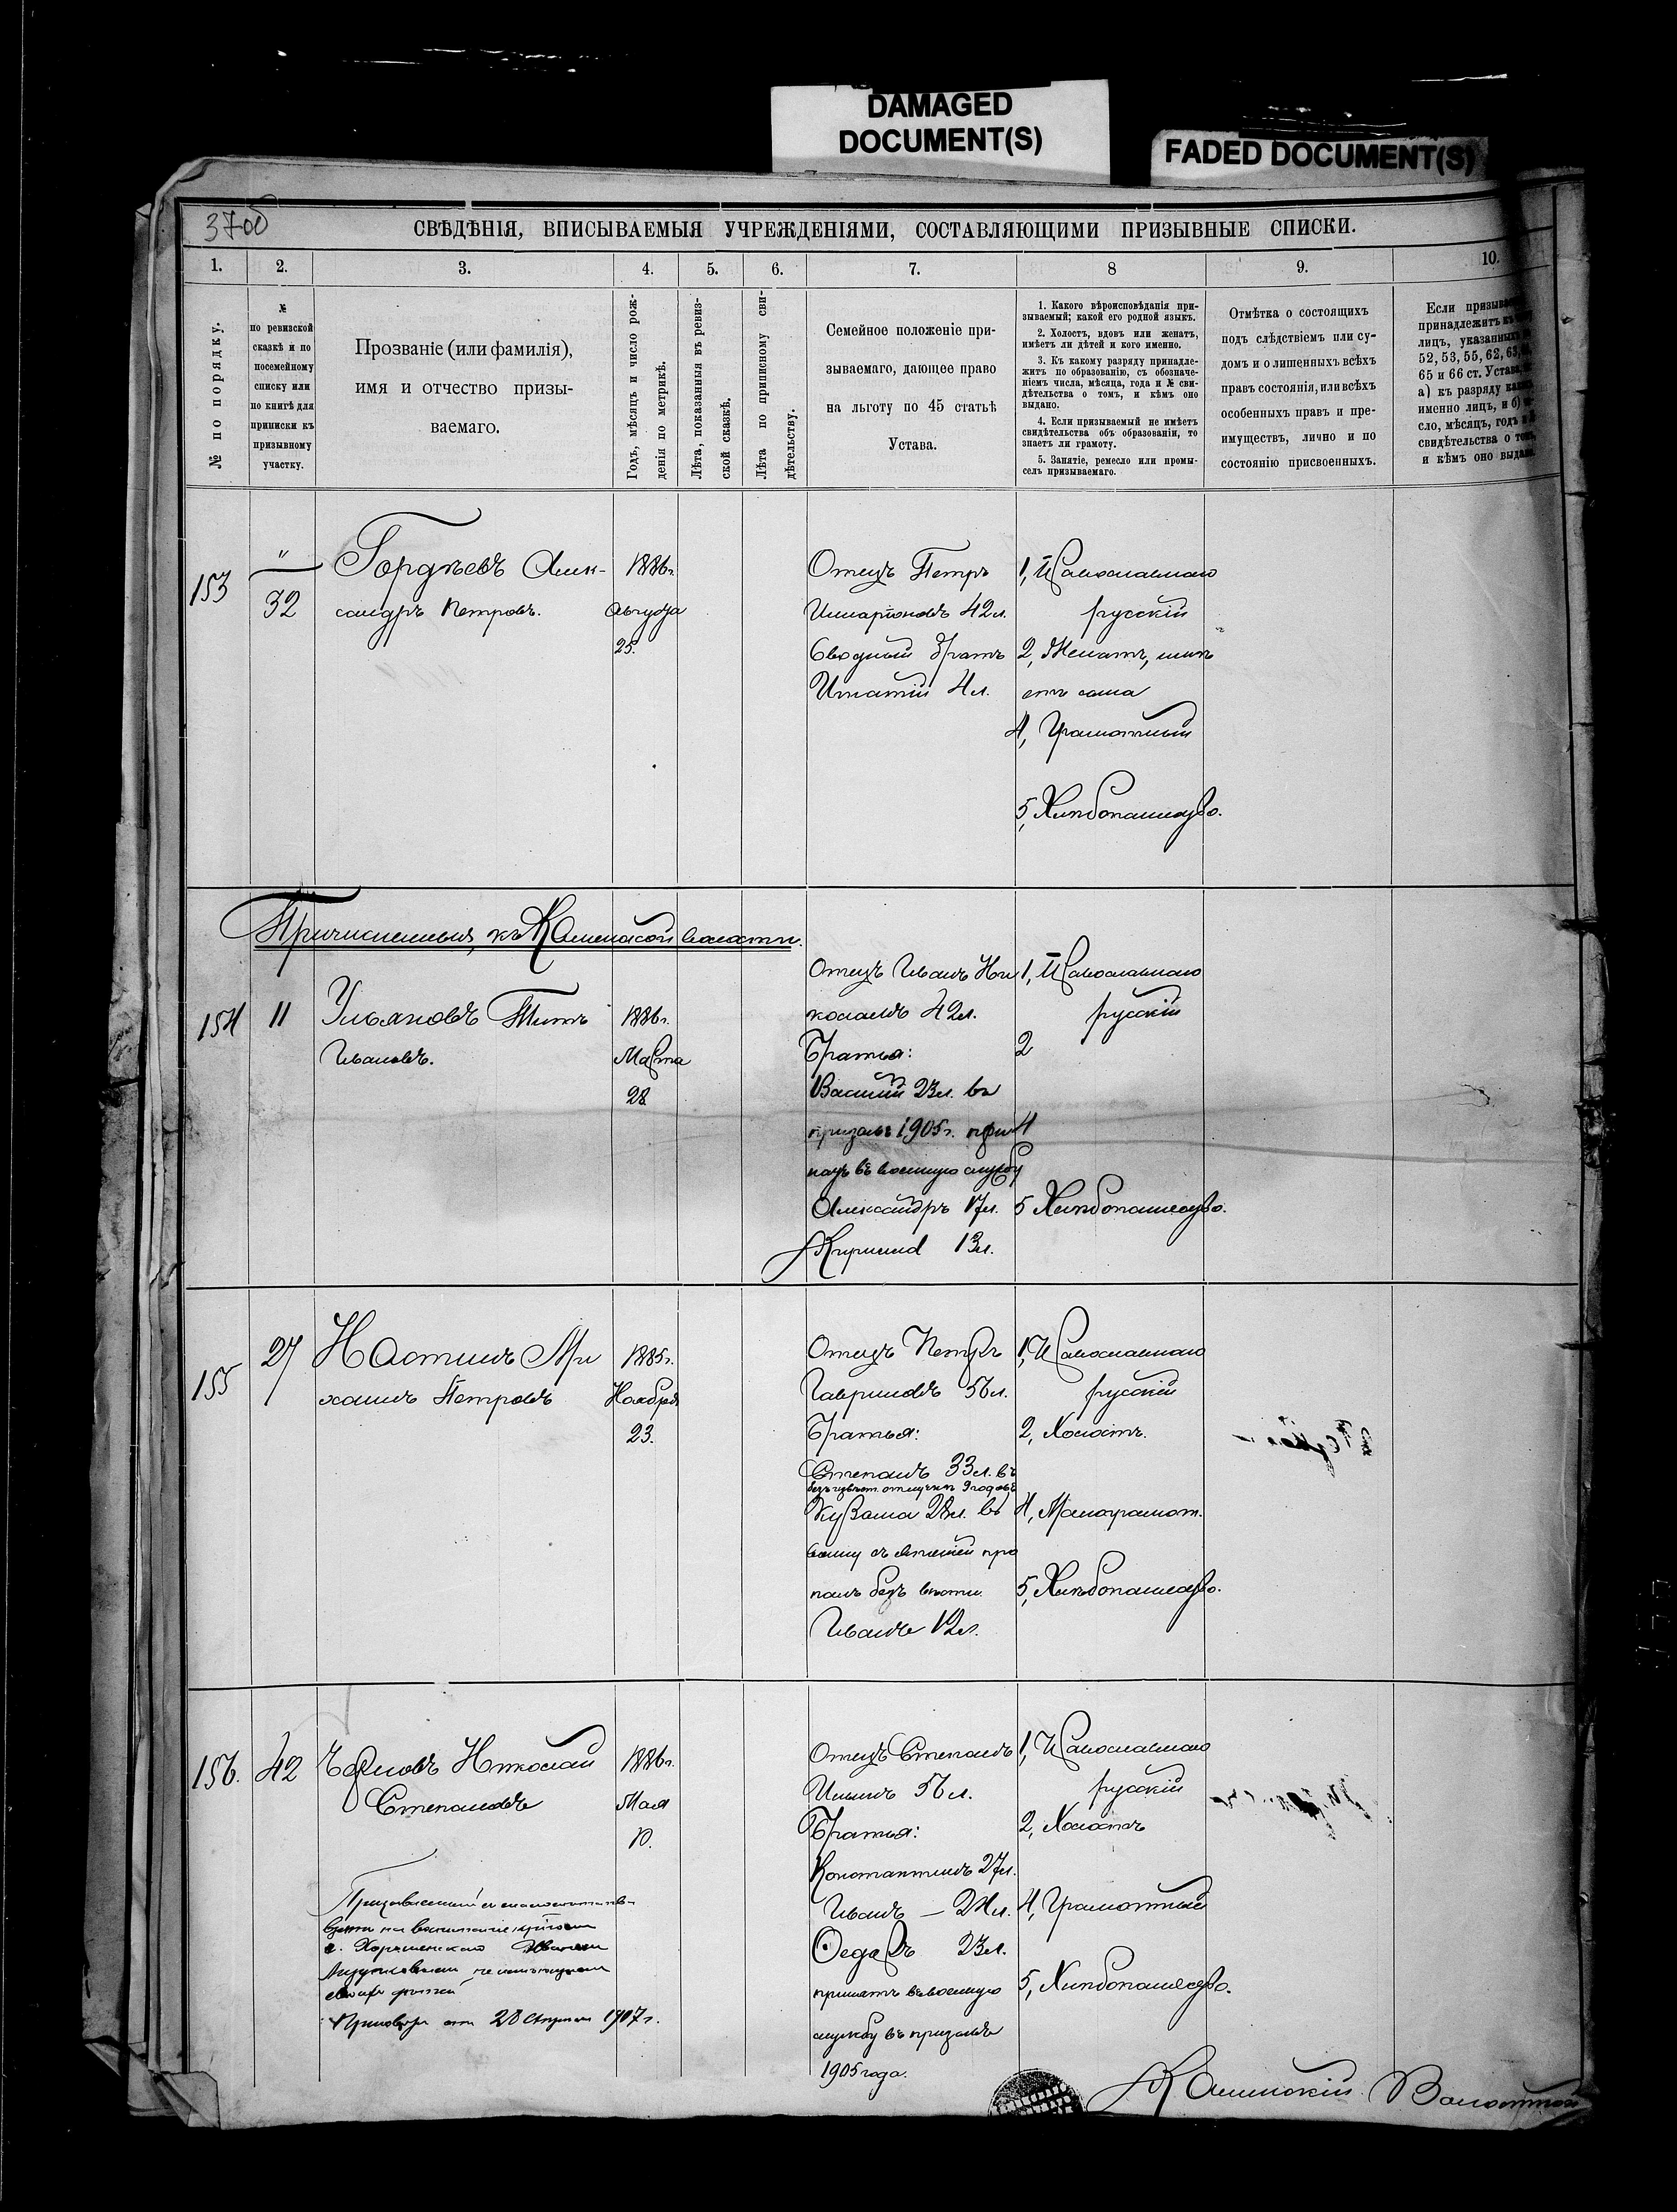 DAMAGED
DOCUMENT(S)
FADED DOCUMENT(S)
370об
СВѢДѢНІЯ, ВПИСЫВАЕМЫЯ УЧРЕЖДЕНІЯМИ, СОСТАВЛЯЮЩИМИ ПРИЗЫВНЫЕ СПИСКИ.
1. 2. 3. 4. 5. 6. 7. 8 9. 10.
№ по порядку.
№
по ревизской
сказкѣ и по
посемейному
списку или
по книгѣ для
приписки къ
призывному
участку.
Прозваніе (или фамилія),
имя и отчество призы-
ваемаго.
Годъ, мѣсяцъ и число рож-
денія по метрикѣ.
Лѣта, показанныя въ ревиз-
ской сказкѣ.
Лѣта по приписному сви-
дѣтельству.
Семейное положеніе при-
зываемаго, дающее право
на льготу по 45 статьѣ
Устава.
1. Какого вѣроисповѣданія при-
зываемый; какой его родной языкъ.
2. Холостъ, вдовъ или женатъ,
имѣетъ ли дѣтей и кого именно.
3. Къ какому разряду принадле-
житъ по образованію, съ обозначе-
ніемъ числа, мѣсяца, года и № сви-
дѣтельства о томъ, и кѣмъ оно
выдано.
4. Если призываемый не имѣетъ
свидѣтельства объ образованіи, то
знаетъ ли грамоту.
5. Занятіе, ремесло или промы-
селъ призываемаго.
Отмѣтка о состоящихъ
подъ слѣдствіемъ или су-
домъ и о лишенныхъ всѣхъ
правъ состоянія, или всѣхъ
особенныхъ правъ и пре-
имуществъ, лично и по
состоянію присвоенныхъ.
Если
принадлежитъ
лицъ, указанныхъ
52, 53, 55, 62, 63,
65 и 66 ст. Устава,
а) къ разряду
именно лицъ, и б)
сло, мѣсяцъ, годъ
свидѣтельства о томъ,
и кѣмъ оно
153
"
32
Гордѣевъ Алек-
сандръ Петровъ.
1886г.
Августа
25.
Отецъ Петръ
Илларіоновъ 42л.
Сводный братъ
Игнатій 4л.
1, Православнаго
русскій
2, Женатъ, имѣ
етъ сына
4, Грамотный
5, Хлѣбопашество.
Причисленныя къ Каменской волости.
154
11
Ульяновъ Титъ
Ивановъ.
1886г.
Марта
28
Отецъ Иванъ Ни
колаевъ 42л.
Братья:
Василій 23л. въ
призывъ 1905г. при
нятъ въ военную службу
Александръ 17л.
Кириллъ 13л.
1, Православнаго
русскій
2
4
5 Хлѣбопашество.
155
27
Настинъ Ми
хаилъ Петровъ
1885г.
Ноября
23.
Отецъ Петръ
Гавриловъ 56л.
Братья:
Степанъ 33л. въ
безъизвѣст. отлучкѣ 9 годовъ
Кузьма 28л. въ
войну съ Японіей про
палъ безъ вѣсти.
Иванъ 12л.
1, Православнаго
русскій
2, Холостъ.
4, Малограмот.
5, Хлѣбопашество.
156.
42
Николай
Степановъ
1886г.
Мая
10.
на воспитаніе
Приговоръ отъ 28 Апрѣля 1907г.
Отецъ Степанъ
Ильинъ 56л.
Братья:
Константинъ 27л.
Иванъ — 24л.
Ѳедоръ 23л.
принятъ въ военную
службу въ призывъ
1905 года.
1, Православнаго
русскій
2, Холостъ
4, Грамотный
5, Хлѣбопашество.
Каменскій Волостной